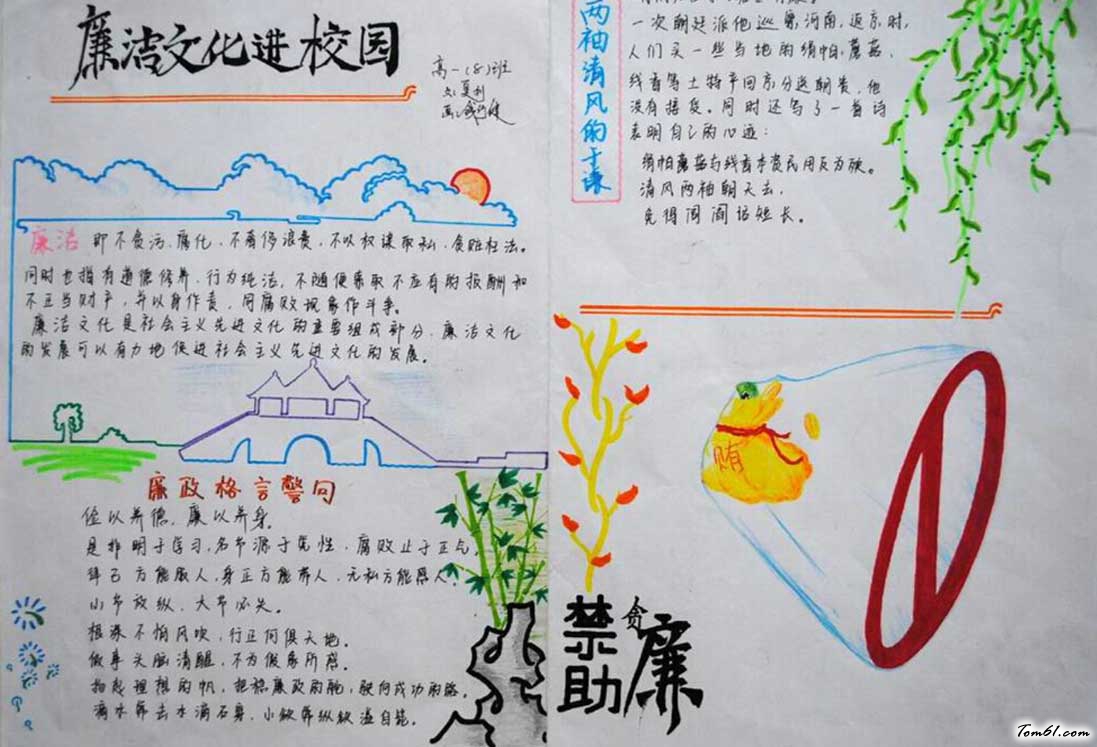 廉洁文化进校园
高一(8)班
文:夏利
廉洁 即不贪污、腐化,不奢侈浪费,不以权谋取私,贪赃枉法。
同时也指有道德修养,行为纯洁,不随便索取不应有的报酬和
不正当财产,并以身作责,同腐败现象作斗争。
廉洁文化是社会主义先进文化的重要组成部分,廉洁文化
的发展可以有力地促进社会主义先进文化的发展。
廉政格言警句
俭以养德,廉以养身。
是非明于学习,名节源于党性,腐败止于正气。
律己方能服人,身正方能带人,无私方能感人。
小节放纵,大节必失。
根深不怕风吹,行正何惧天地。
做事头脑清醒,不为假象所惑。
扬起理想的帆,把稳廉政的舵,驶向成功的路。
两袖清风的于谦
一次朝廷派他巡察河南,返京时,
人们买一些当地的绢帕、蘑菇、
线香等土特产回京分送朝贵,他
没有接受。同时还写了一首诗
表明自己的心迹:
绢帕蘑菇与线香本资民用反为殃。
清风两袖朝天去,
免得阎闾话短长。
贿
禁贪
助廉
Tom61.com